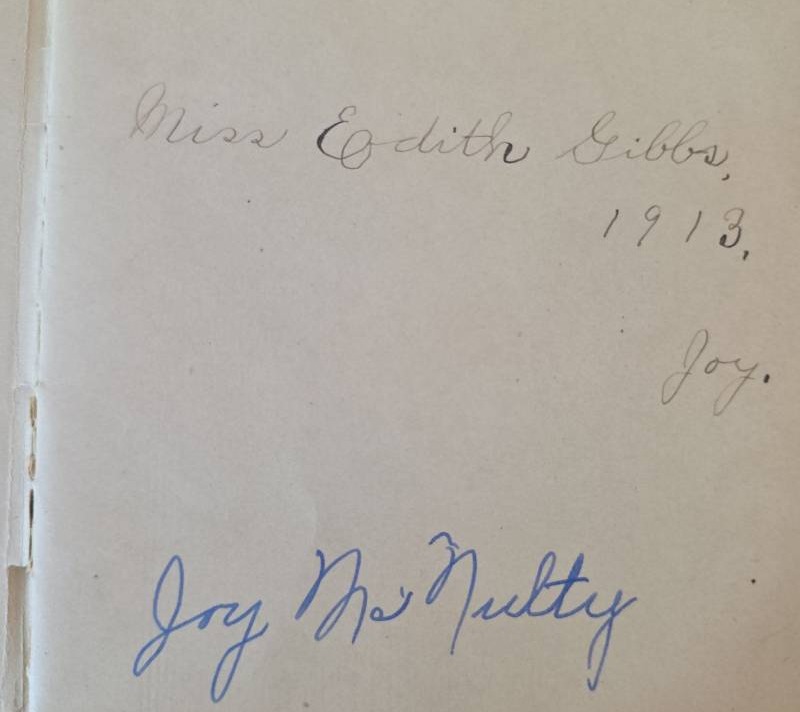 Miss Edith Gibbs,
1913,
Joy.
Joy McNulty